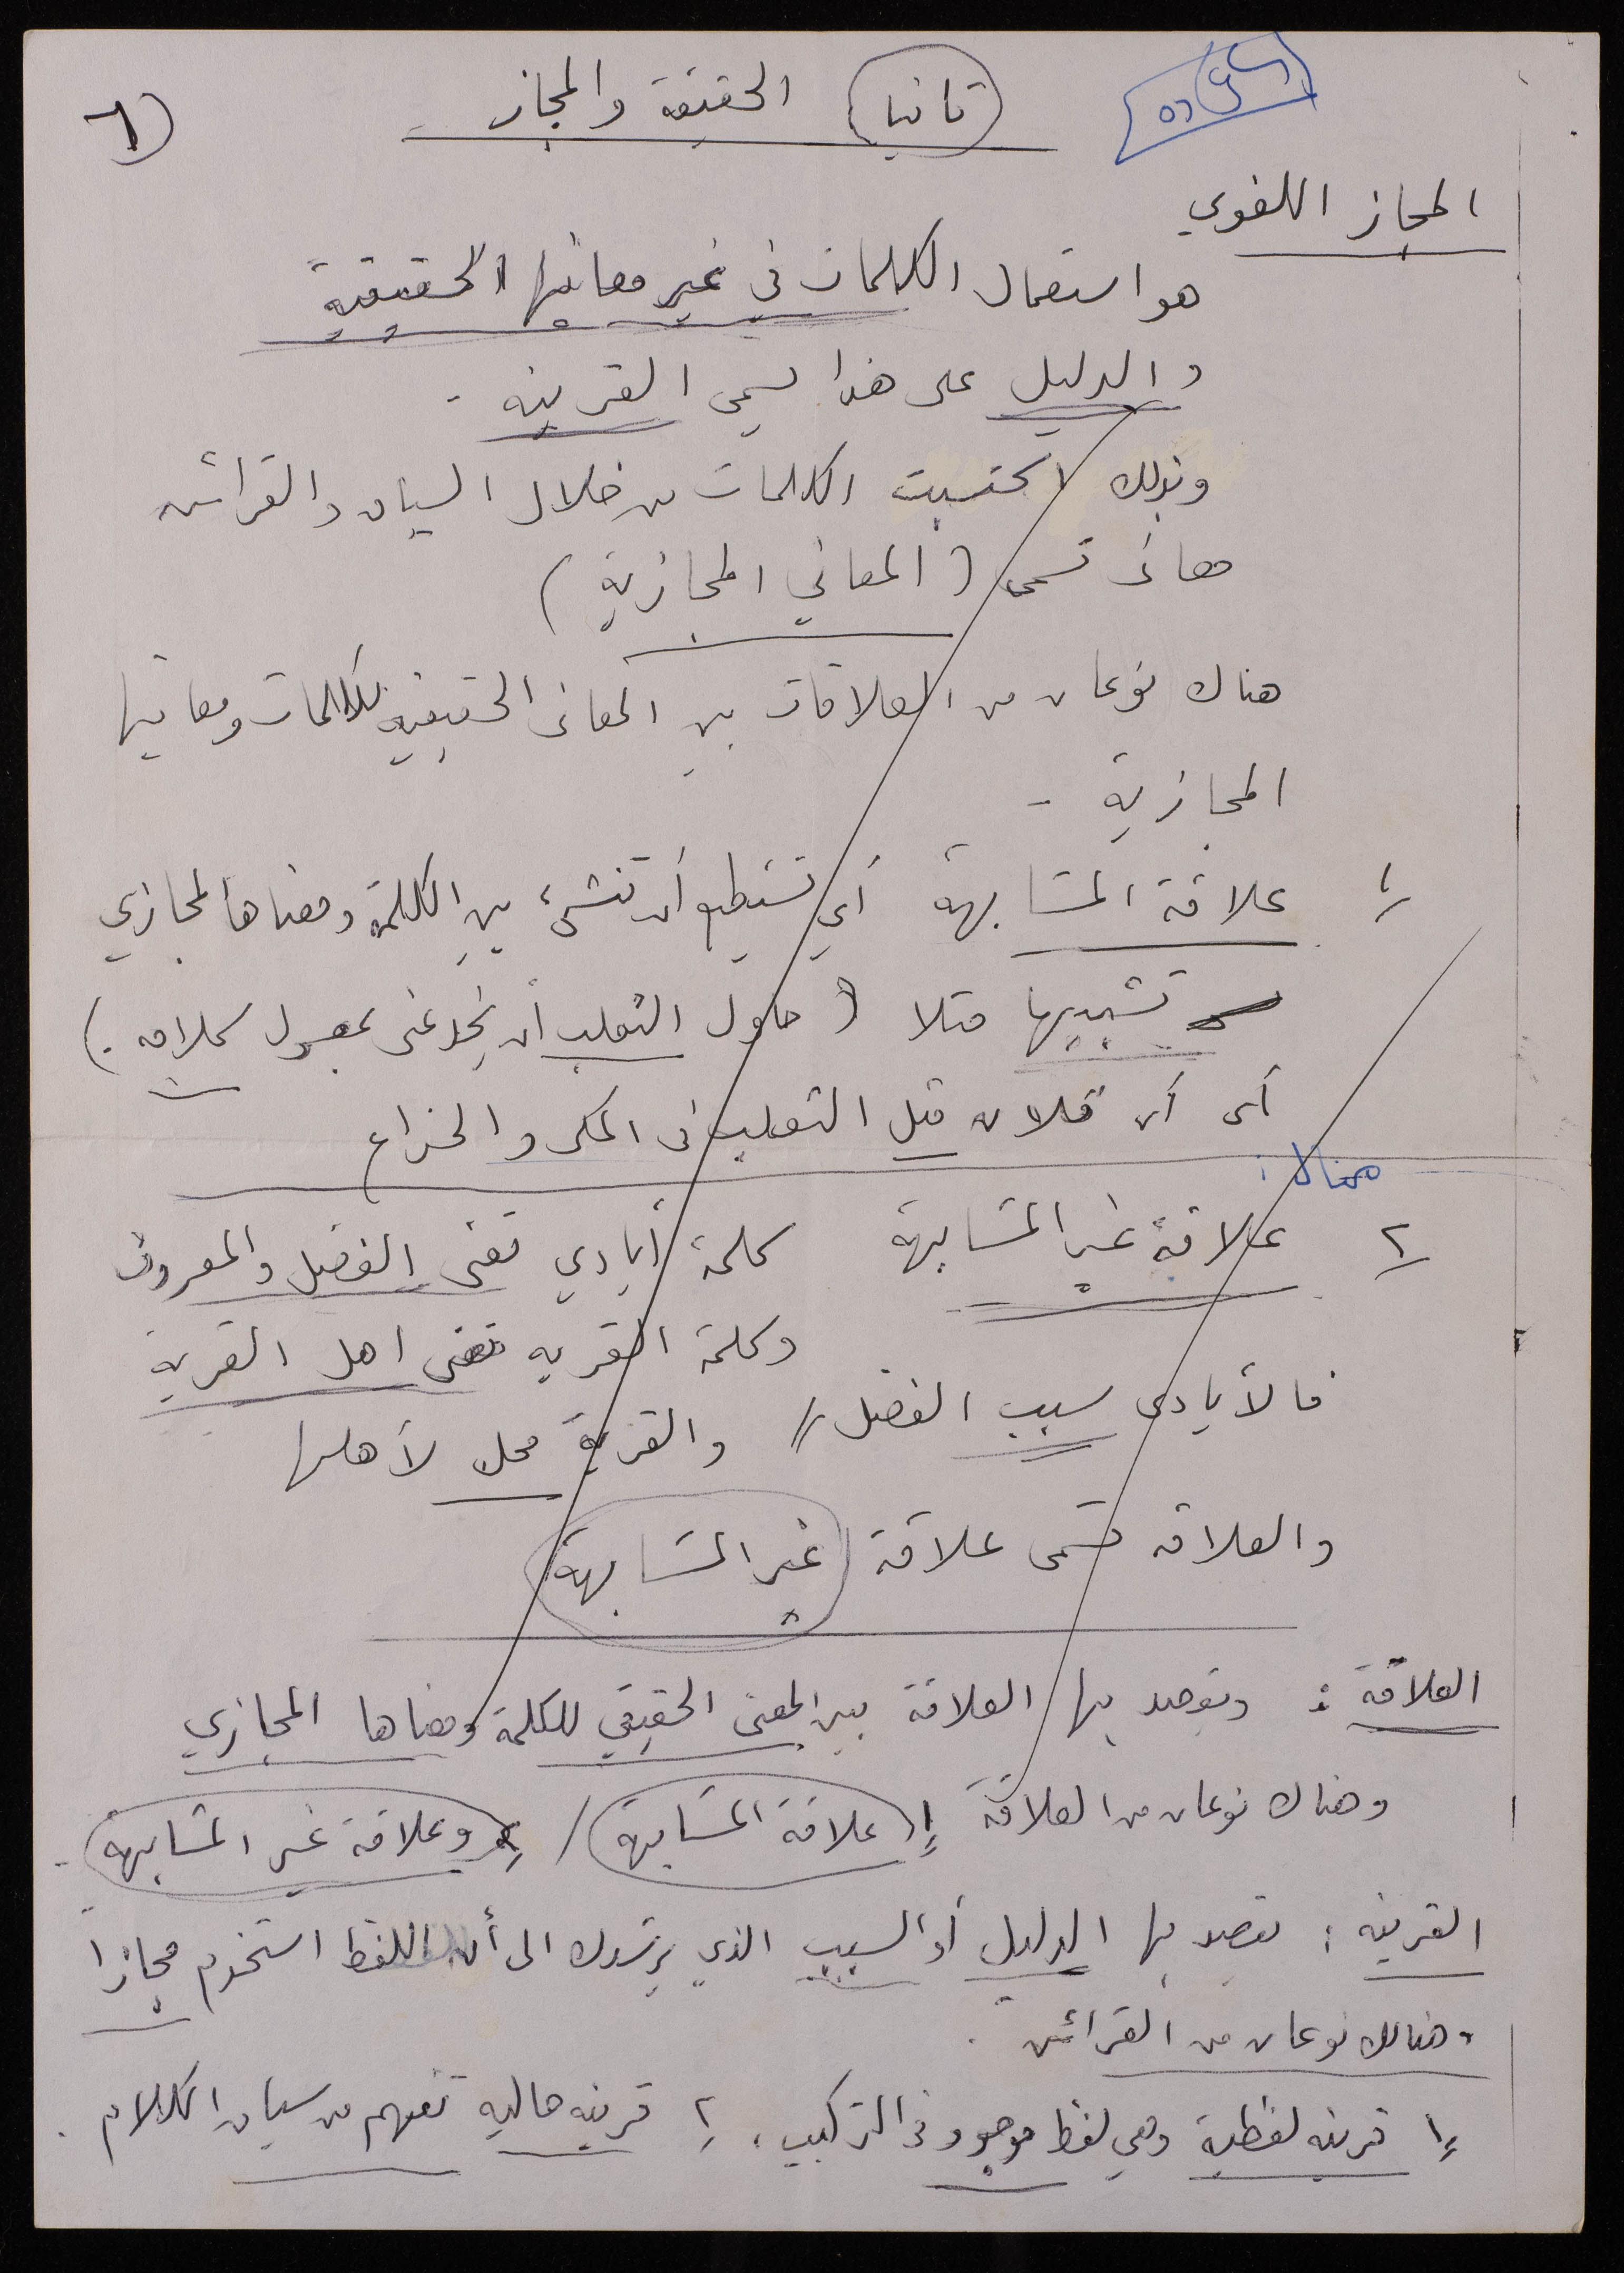 ثانيا الحقيقة والمجاز
المجاز اللغوي
هو استعمال الكلمات في غير معانيها الحقيقية
والدليل على هذا يسمى القرينه .
وبذلك اكتسبت الكلمات من خلال السياق والقرائن
معانى تسمى ( المعاني المجازية )
هناك نوعان من العلاقات بين المعانى الحقيقيه للكلمات ومعانيها
المجازية -
١/ علاقة المشابهة أي تستطيع أن تنشىء بين الكلمة ومعناها المجازي
تشبيها مثلا ( حاول الثعلب أن يخدعنى بمعسول كلامه . )
أى أن فلان مثل الثعلب فى المكر والخداع
مثال :
٢/ علاقة غير المشابهة كلمة أيادي تعنى الفضل والمعروف
وكلمة القريه تعنى اهل القرية
فالأيادى سبب الفضل // والقرية محل لأهلها
والعلاقه تسمى علاقة غير المشابهة
العلاقة : ويقصد بها العلاقة بين المعنى الحقيقي للكلمة ومعناها المجازي
وهناك نوعان من العلاقة ١/ علاقة المشابهة / ٢/ وعلاقة غير المشابهة .
القرينه : يقصد بها الدليل أو السبب الذي يرشدك الى أن اللفظ استخدم مجازا
وهنالك نوعان من القرائن .
١/ قرينه لفظية وهي لفظ موجود فى التركيب ، ٢/ قرينه حاليه تفهم من سياق الكلام .